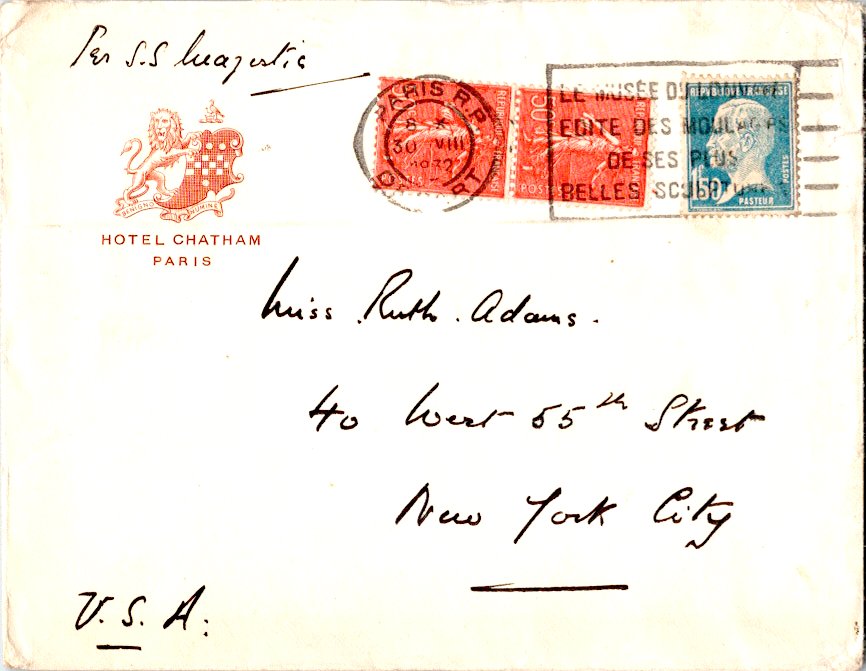 Per S.S Majestic
PARIS R.P.
8 X
30 VIII
1932
DÉPART
LE MUSÉE DU LOUVRE
EDITE DES MOULAGES
DE SES PLUS
BELLES SCULPTURES
REPUBLIQUE FRANÇAISE
50c
POSTES
REPUBLIQUE FRANÇAISE
1F50
POSTES
PASTEUR
BENIGNO NUMINE
HOTEL CHATHAM
PARIS
Miss Ruth. Adams.
40 West 55th Street
New York City
U.S.A.